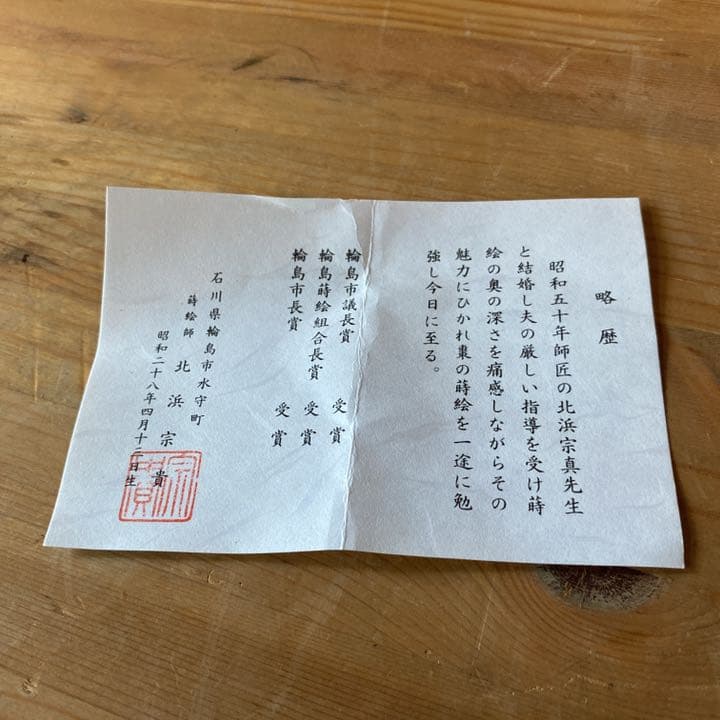 略歴
昭和五十年師匠の北浜宗真先生
と結婚し夫の厳しい指導を受け蒔
絵の奥の深さを痛感しながらその
魅力にひかれ棗の蒔絵を一途に勉
強し今日に至る。
輪島市議長賞 受賞
輪島蒔絵組合長賞 受賞
輪島市長賞 受賞
石川県輪島市水守町
蒔絵師 北浜宗貴
昭和二十八年四月十二日生
宗貴